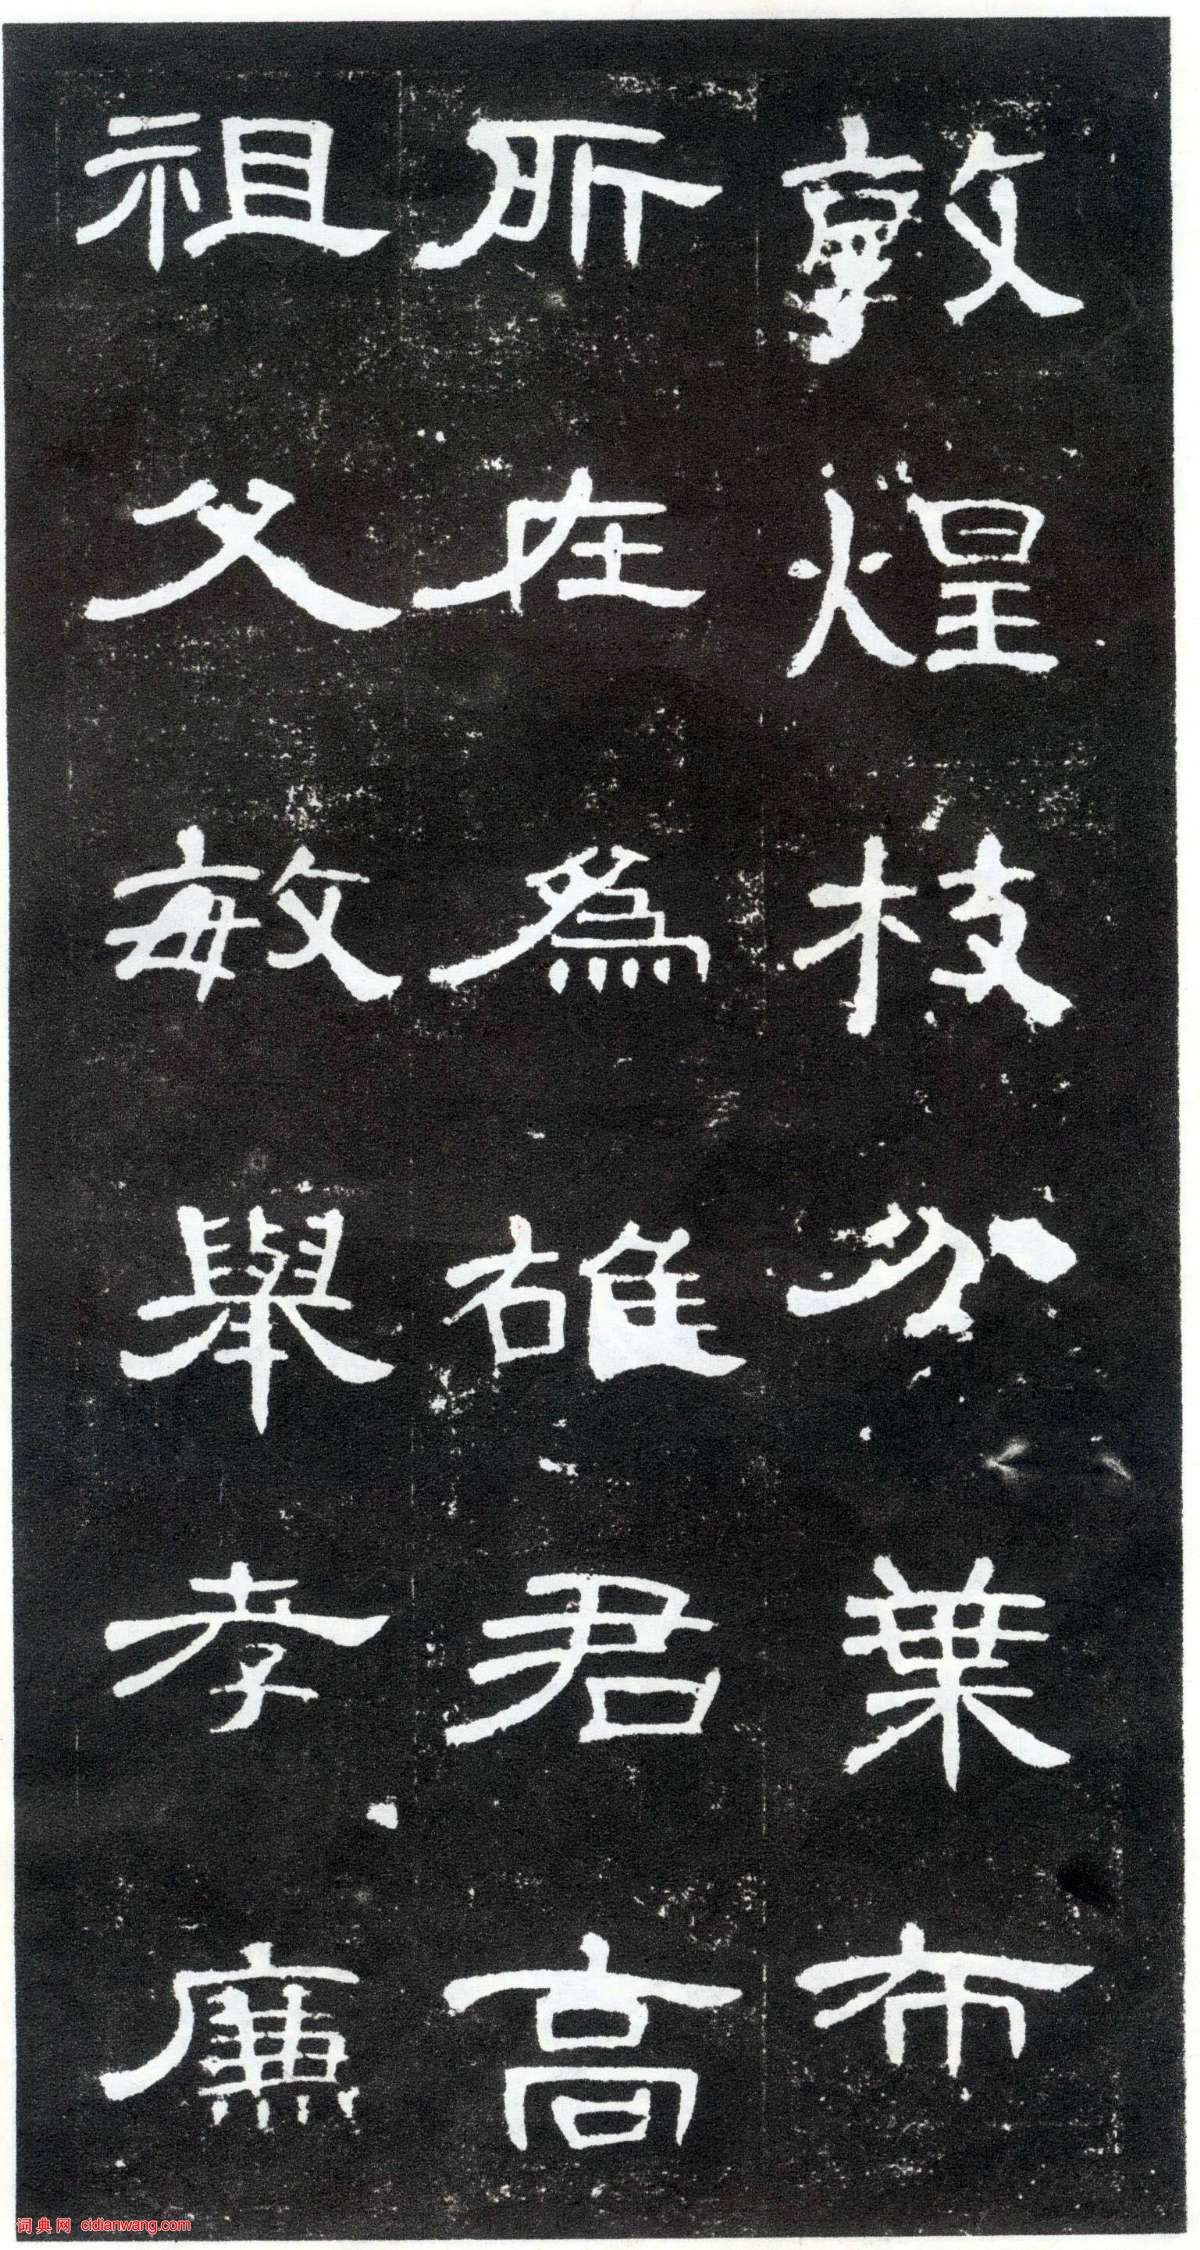 敦煌枝分葉布
所在為雄君高
祖父敏舉孝廉
词典网 cidianwang.com